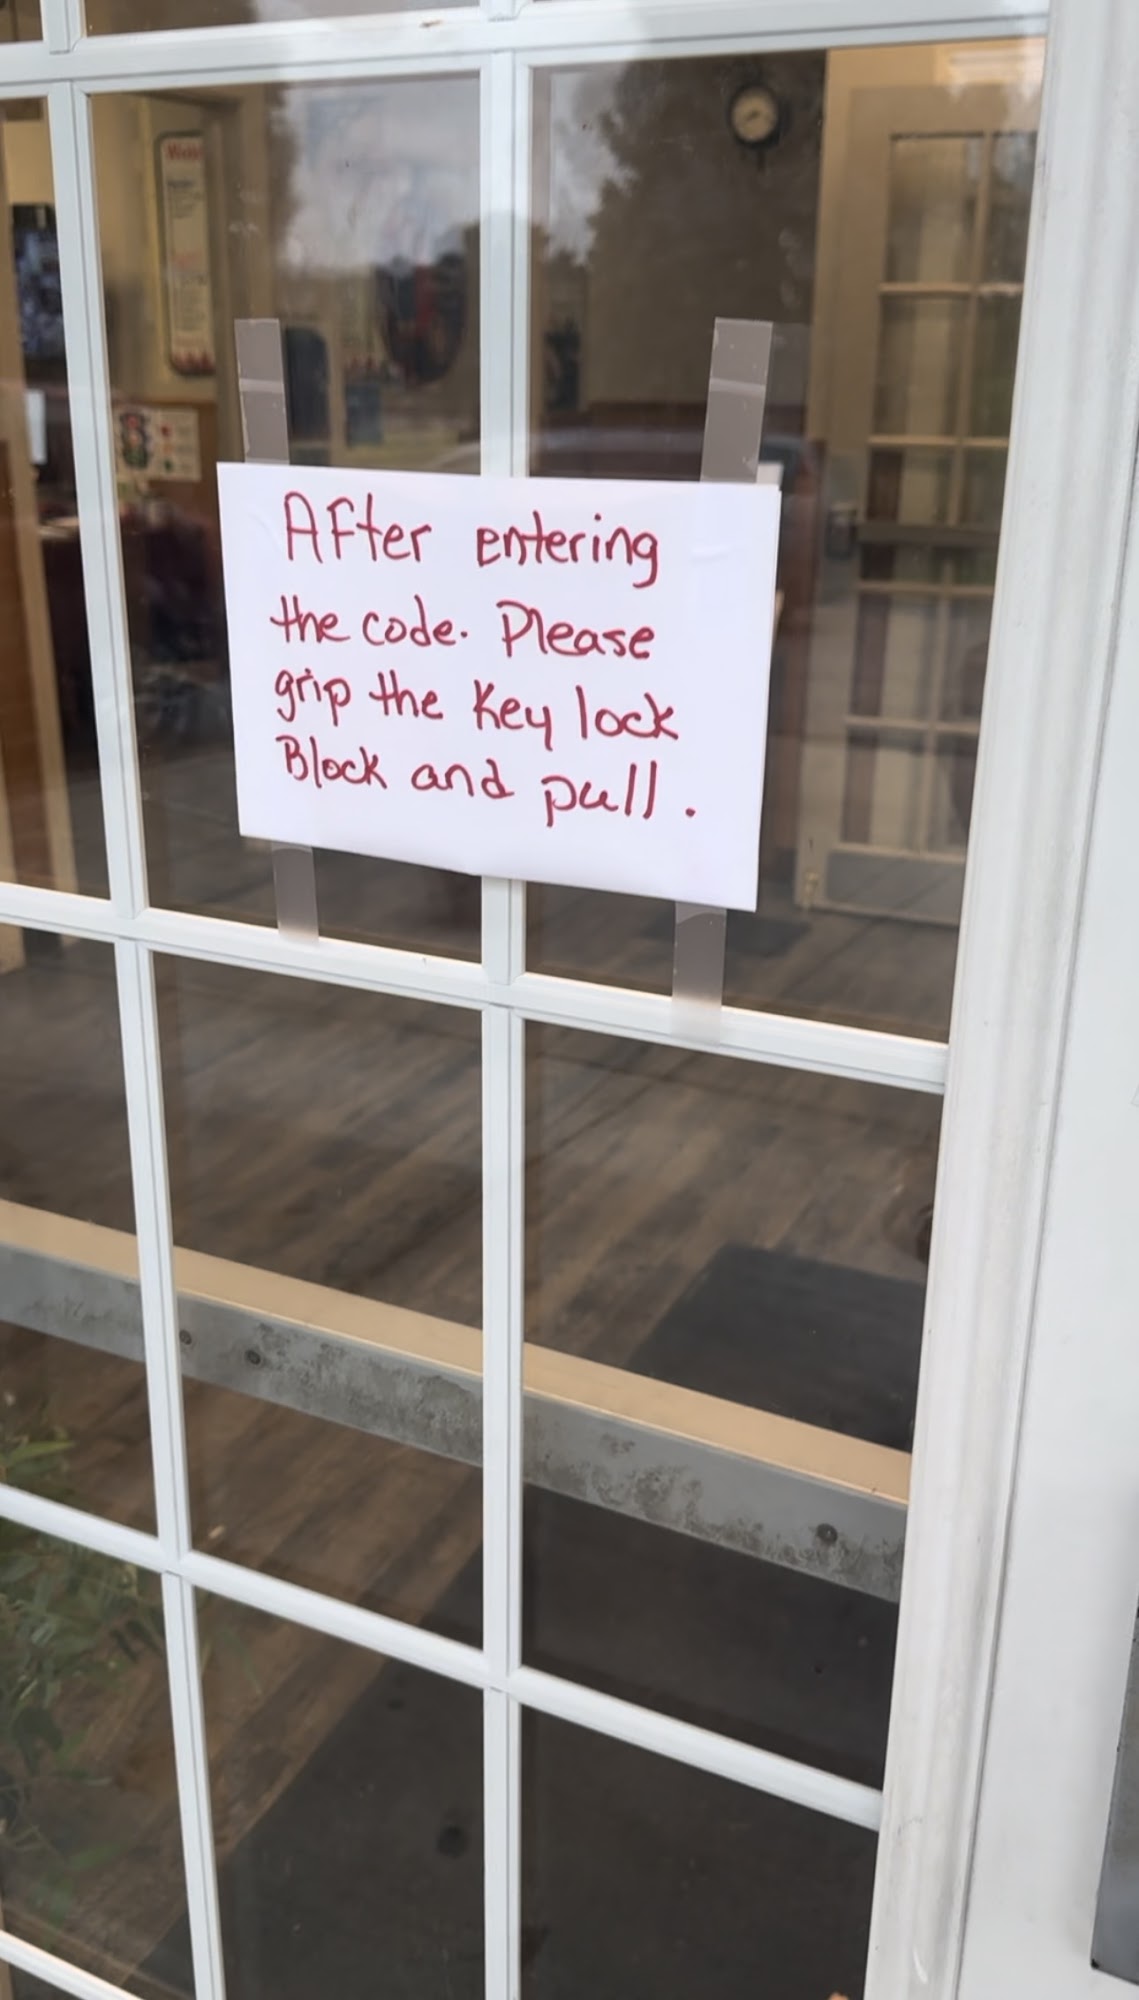 After entering
the code. Please
grip the Key lock
Block and pull.